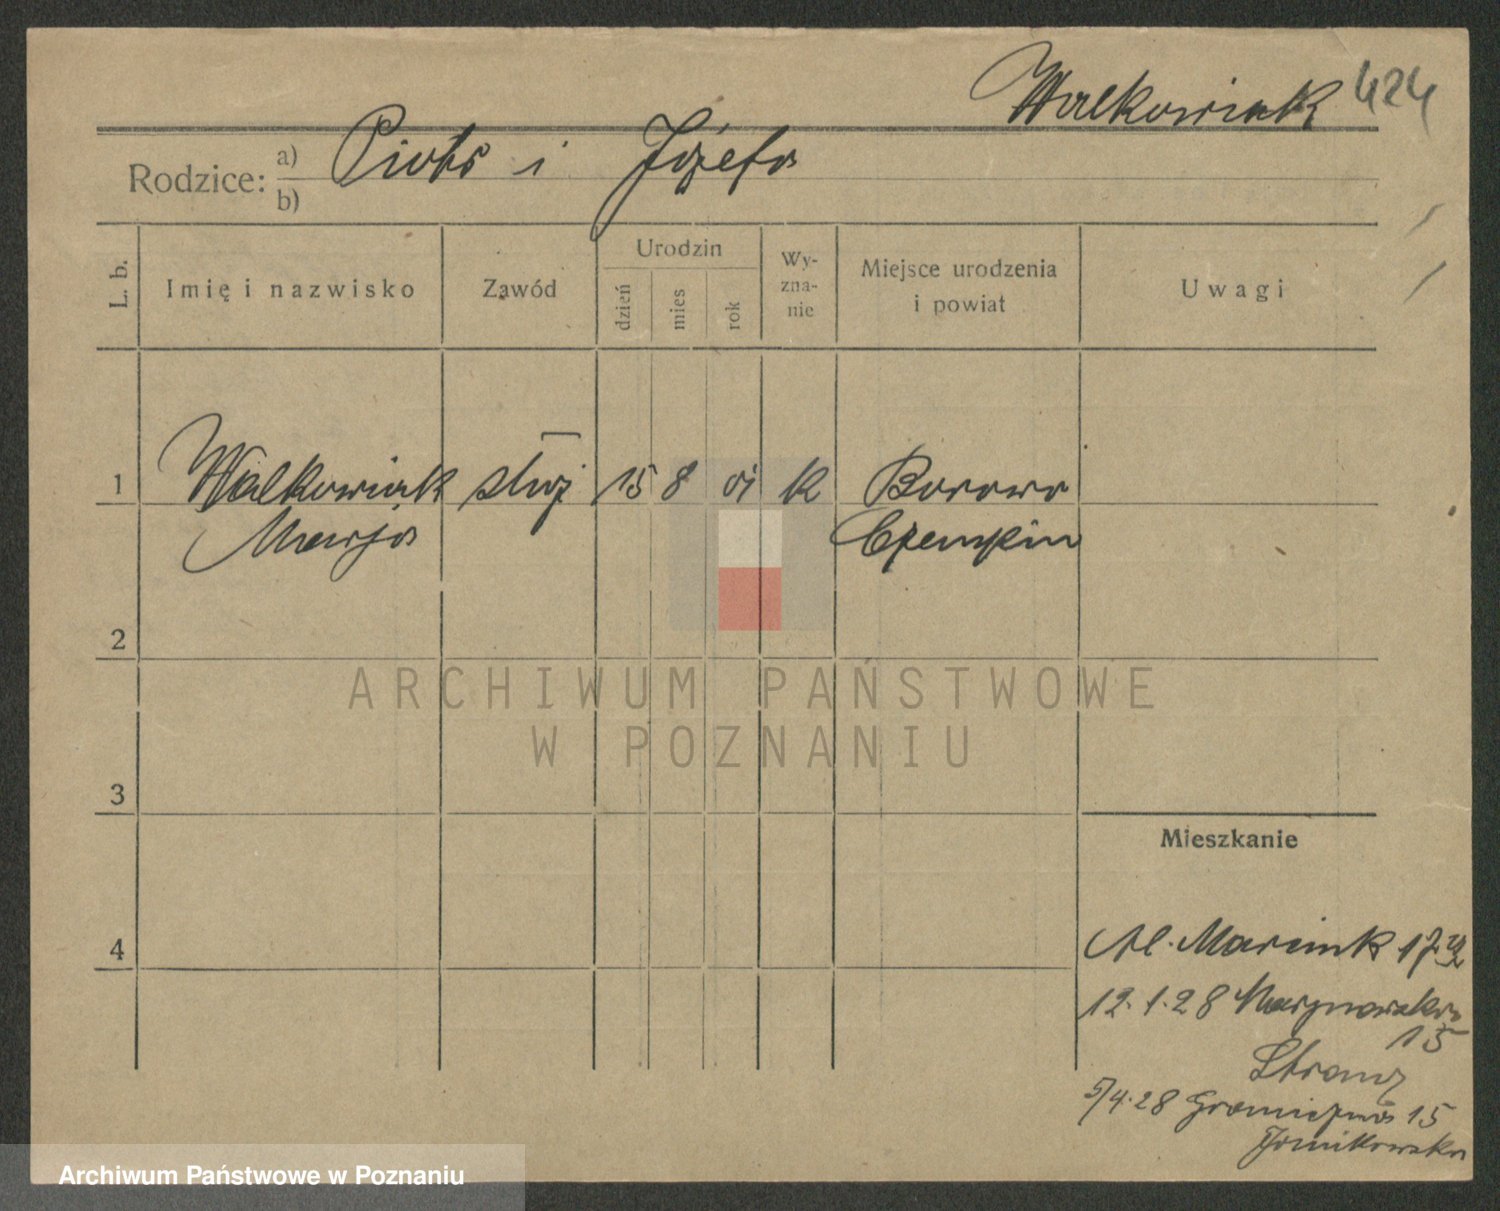 Walkowiak 424
Rodzice: a) Piotr i Józefa
b)
L. b.
Imię i nazwisko
Zawód
Urodzin
dzień
mies
rok
Wy-
zna-
nie
Miejsce urodzenia
i powiat
Uwagi
1 Walkowiak służ 15 8 01 k Borowo
Marja Czempin
2
3
4
Mieszkanie
Al. Marcink 17
12.1.28 Marynarska
15
5/4.28 Graniczna 15
ARCHIWUM PAŃSTWOWE
W POZNANIU
Archiwum Państwowe w Poznaniu